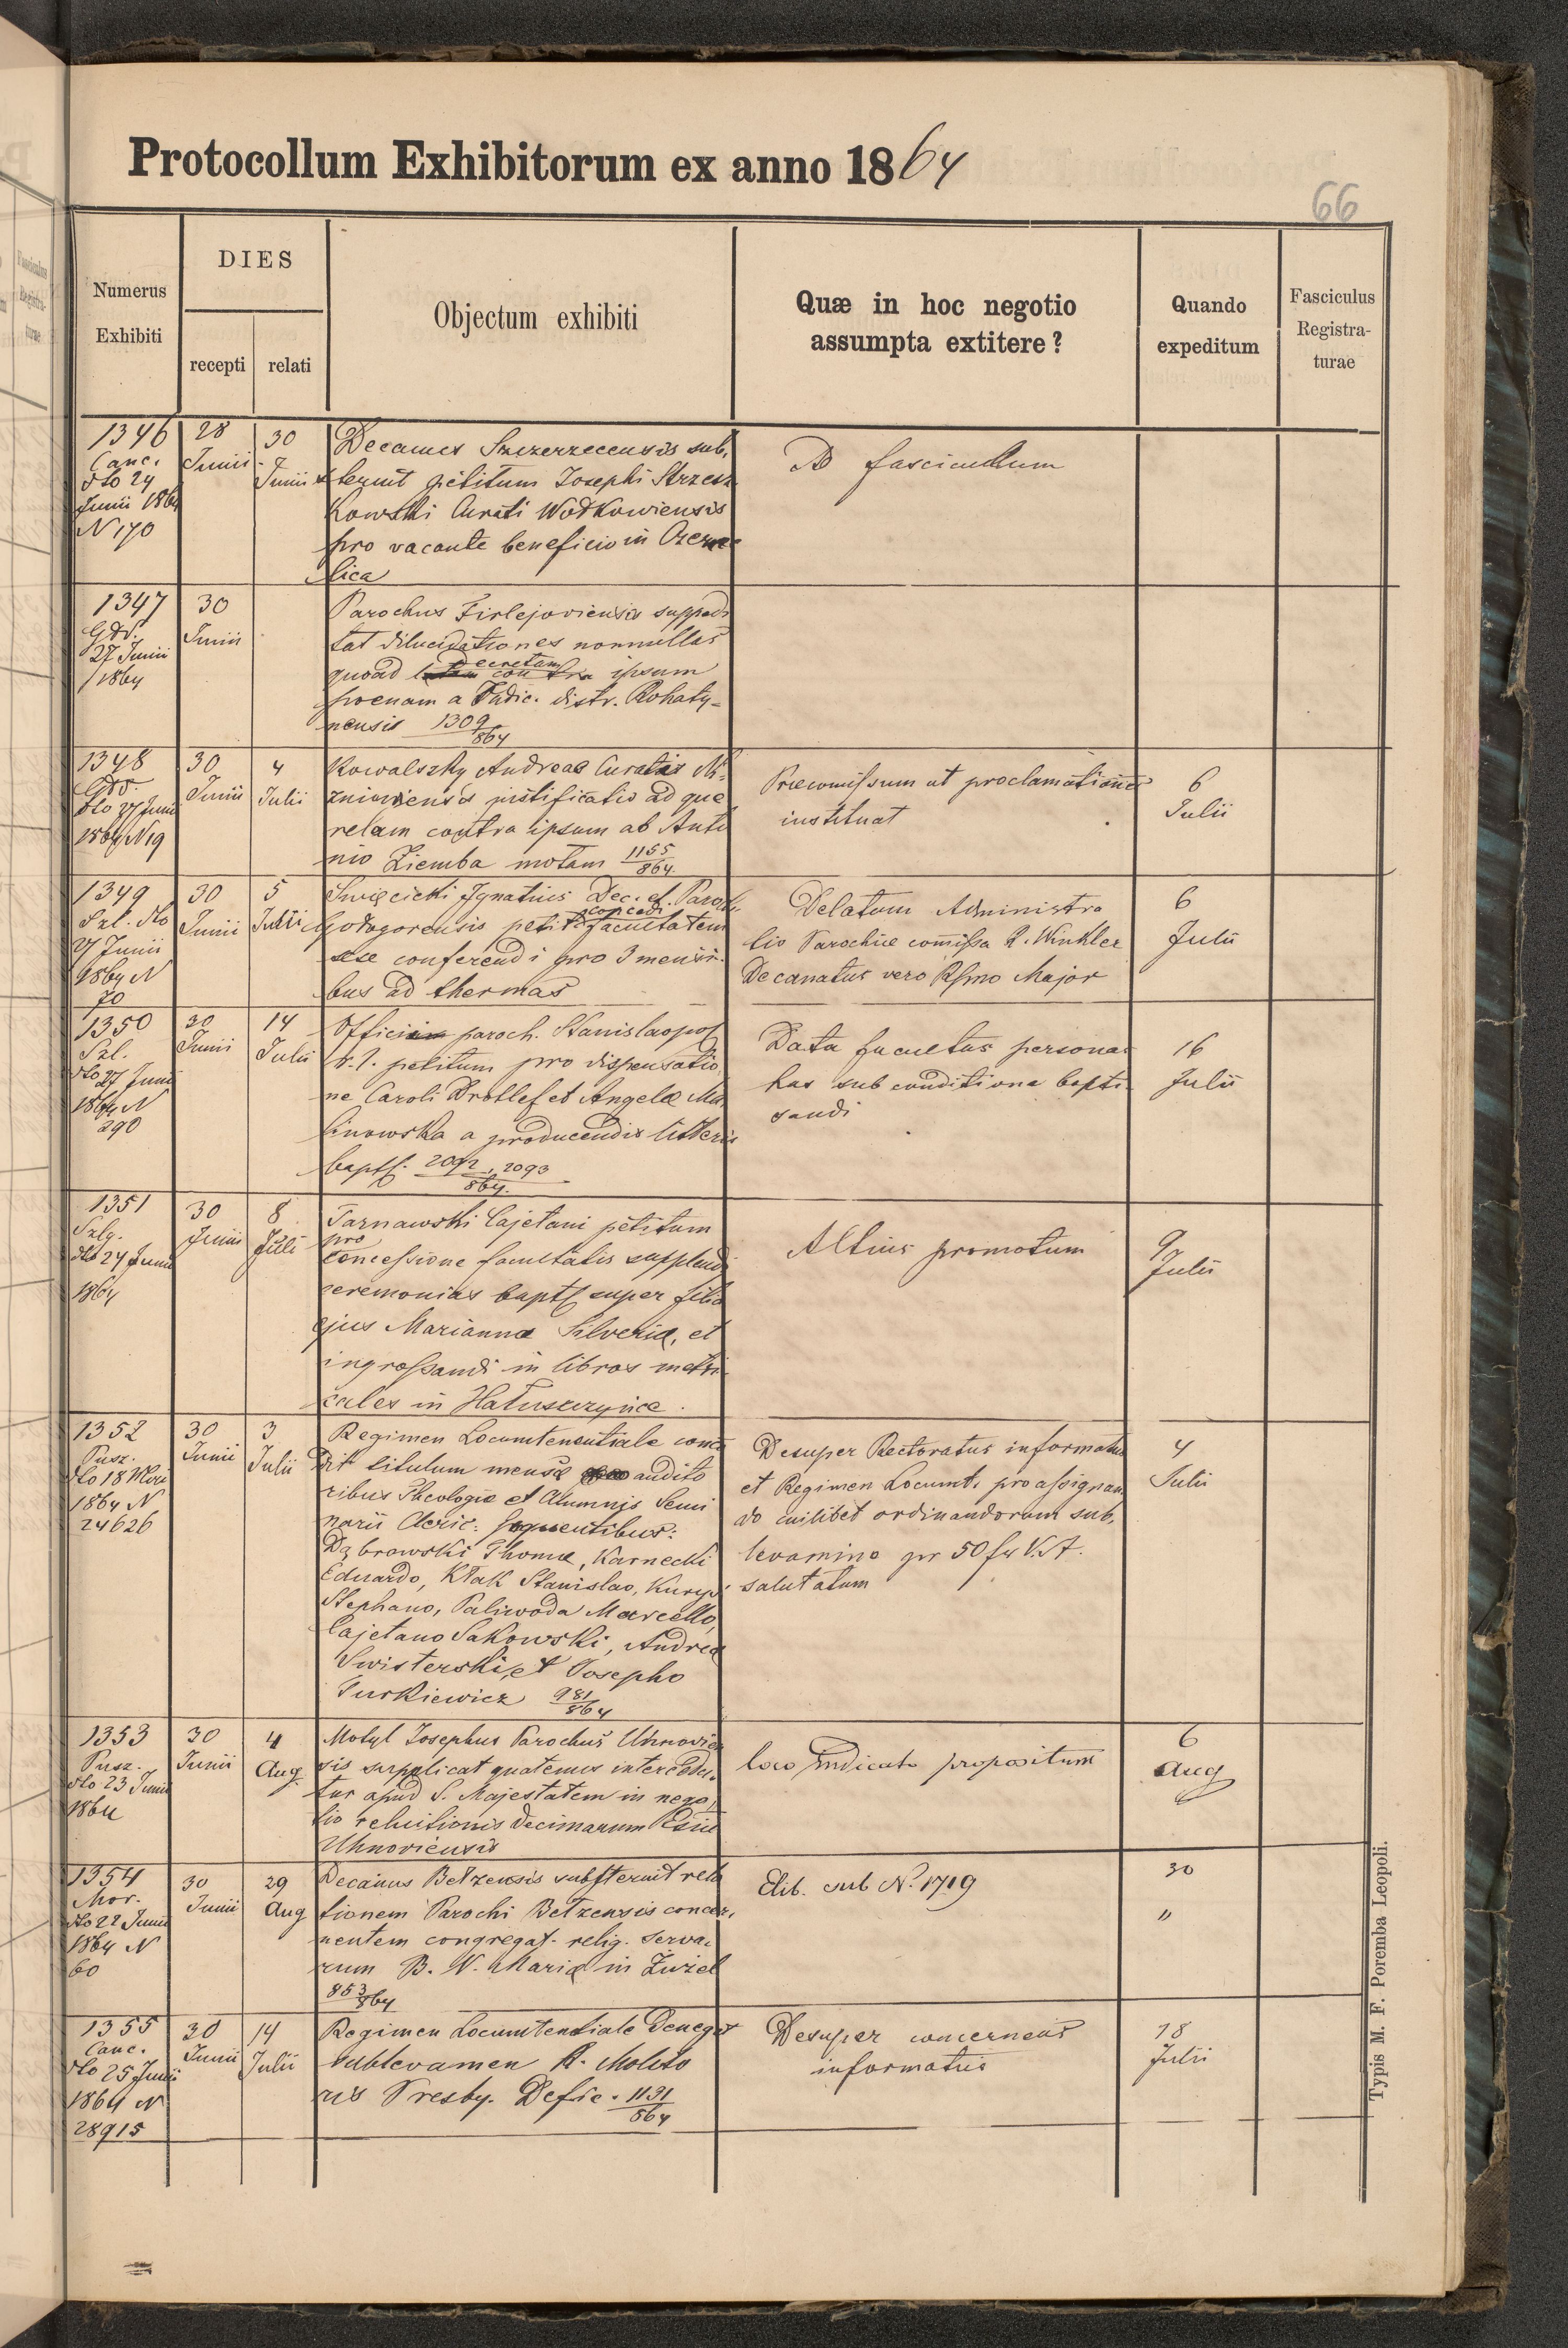 Protocollum Exhibitorum ex anno 1864
66
Numerus Exhibiti
DIES
recepti
relati
Objectum exhibiti
Quæ in hoc negotio assumpta extitere?
Quando expeditum
Fasciculus Registra-
turae
1346
Canc.
dto 24
Junii 1864
N 170
28
Junii
30
Junii
Decanus Szczerzecensis sub,
sternit petitum Josephi Strzesz
kowski Curati Wodkowiensis
pro vacante beneficio in Czerne
lica
Ad fasciculum
1347
27 Junii
1864
30
Junii
Parochus Firlejoviensis suppedi
tat dilucidationes nonnullas
quoad decretam contra ipsum
poenam a Judic. distr. Rohaty-
nensis 1309/864
1348
dto 27 Junii
1864 N19
30
Junii
4
Julii
Kowalszky Andreas Curatus Ni-
zniowiensis justificatio ad que
relam contra ipsum ab Anto
nio Ziemba motam 1155/864.
Præcomissum ut proclamationes
instituat
6
Julii
1349
Szl. dto
27 Junii
1864 N
70
30
Junii
5
Julii
Swięcicki Ignatius Dec. et Paroch.
Gołogorensis petit concedi facultatem
sese conferendi pro 3 mensi-
bus ad thermas
Delatum Administra
tio Parochiæ comissa R. Winkler
Decanatus vero Rsmo Major
6
Julii
1350
Szl.
dto 27 Junii
1864 N
290
30
Junii
14
Julii
Officii paroch. Stanislaopol
r. l. petitum pro dispensatio,
ne Caroli Drotlef et Angelæ Ma
linowska a producendis litteris
bapts. 2092, 2093/864.
Data facultas personas
has sub conditione bapti
sandi
16
Julii
1351
Szlg.
dto 24 Junii
1864
30
Junii
8
Juli
Tarnawski Cajetani petitum
pro
concessione facultatis supplendi
ceremonias bapts super filia
ejus Marianna Silveria, et
ingrossandi in libros metri
cales in Hałuszczynce.
Altius promotum
9
Julii
1352
Pusz.
dto 18 Mai
1864 N
24626
30
Junii
3
Julii
Regimen Locumtenentiale conce
dit titulum mensæ audito
ribus Theologiæ et Alumnis Semi
narii Cleric: sequentibus:
Dąbrowski Thoma, Karnecki
Eduardo, Kłak Stanislao, Kuryś
Stephano, Paliwoda Marcello,
Cajetano Sakowski, Andrea
Swisterski, et Josepho
Turkiewicz 981/864
Desuper Rectoratus informatus
et Regimen Locumt. pro assignan
do cuilibet ordinandorum sub,
levamine pr 50 fr V.A.
salutatum
4
Julii
1353
Pusz.
dto 23 Junii
1864
30
Junii
4
Aug
Motyl Josephus Parochus Uhnovien
sis supplicat quatenus interceda-
tur apud S. Majestatem in nego,
tio reluitionis decimarum Ecsiæ
Uhnoviensis
loco indicato propositum
6
Aug
1354
Mor.
dto 22 Junii
1864 N
60
30
Junii
29
Aug
Decanus Bełzensis substernit rela
tionem Parochi Bełzensis concer,
nentem congregat. relig. Serva-
rum B. V. Mariæ in Żużel
853/864
Elib. sub N. 1719
30
"
1355
Canc.
dto 25 Junii
1864 N
28915
30
Junii
14
Julii
Regimen Locumtentiale denegat
sublevamen R. Molito
ris Presby. Defic. 1131/864
Desuper concernens
informatus
18
Julii
Typis M. F. Poremba Leopoli.